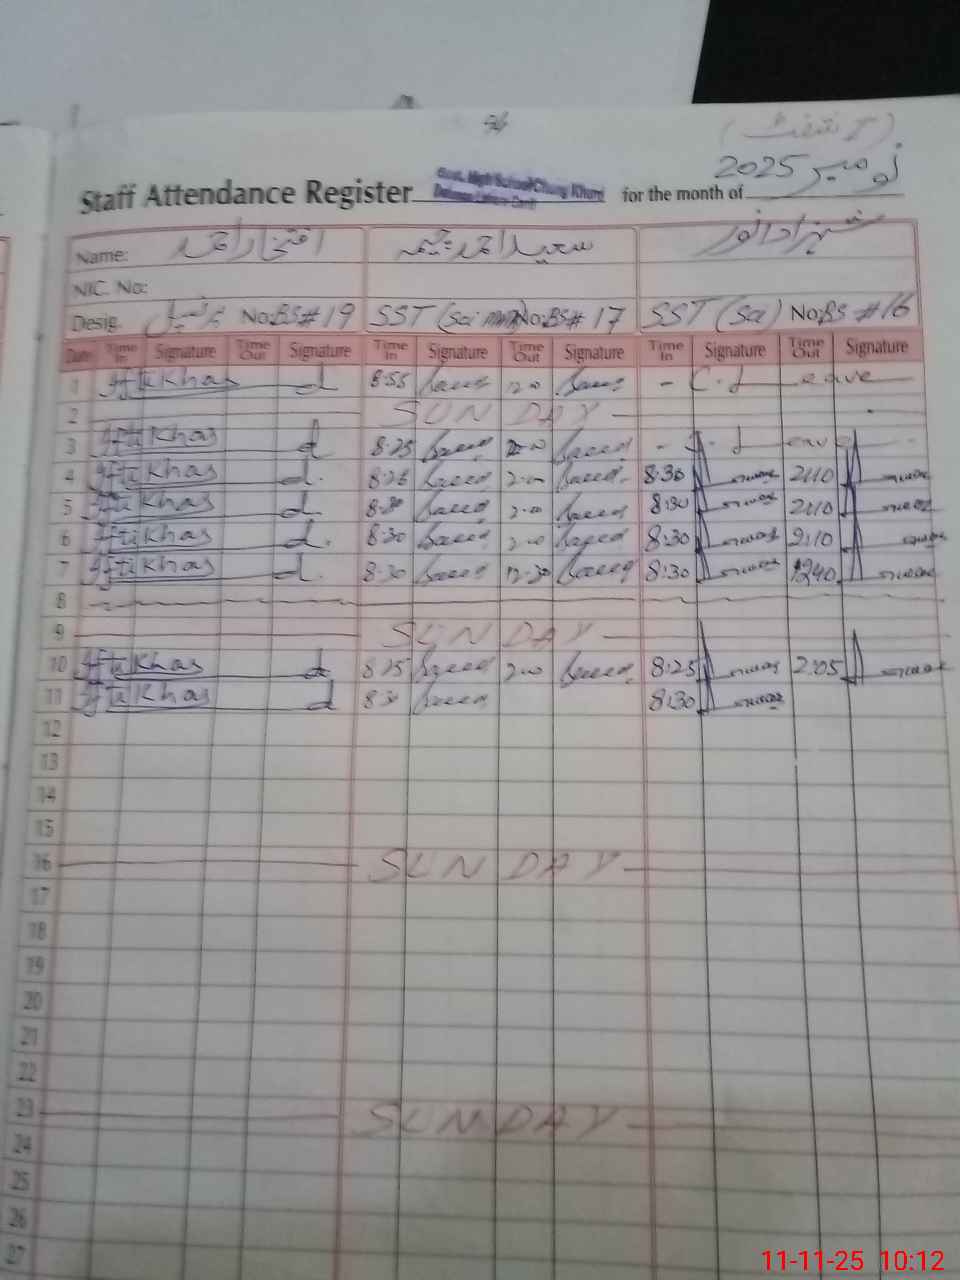 94
(I شفٹ)
Staff Attendance Register Govt. High School Chung Khurd for the month of نومبر 2025
Name: افتخار احمد سعید احمد شہزاد انور
NIC. No:
Desig. پرنسپل No:BS# 19 SST (Sci No:BS# 17 SST (Sci) No:BS #16
Date Time In Signature Time Out Signature Time In Signature Time Out Signature Time In Signature Time Out Signature
1 Iftikhar 8:55 Saeed 12:00 Saeed - C. Leave
2 SUNDAY
3 Iftikhar 8:25 Saeed Saeed
4 Iftikhar Saeed 2:00 Saeed 8:30 2:10
5 Iftikhar Saeed 2:00 Saeed 8:30 2:10
6 Iftikhar 8:30 Saeed 2:00 Saeed 8:30 2:10
7 Iftikhar 8:30 Saeed 12:30 Saeed 8:30 1240
8
9 SUNDAY
10 Iftikhar 8:25 Saeed 2:00 Saeed 8:25 2:05
11 Iftikhar 8:30 Saeed 8:30
12
13
14
15
16 SUNDAY
17
18
19
20
21
22
23 SUNDAY
24
25
26
27
11-11-25 10:12